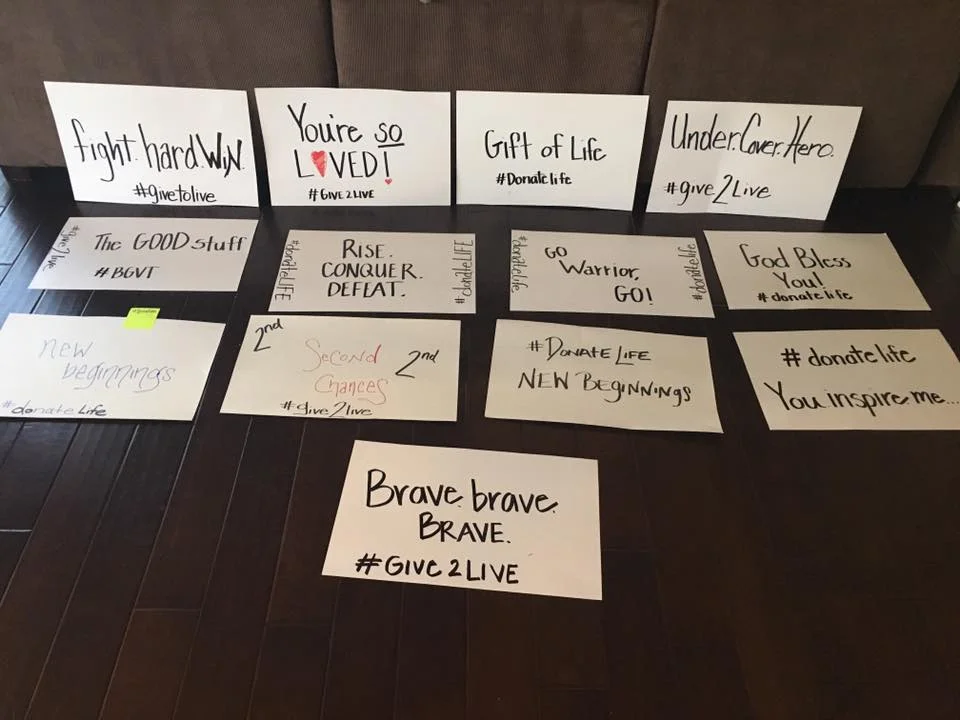 fight. hard. WiN.
#givetolive
You're so
LOVED!
#GIVE2LIVE
Gift of Life
#Donatelife
Under.Cover.Hero.
#give2Live
#give2live
The GOOD stuff
#BGVT
#donateLIFE
RISE.
CONQUER.
DEFEAT.
#donateLIFE
#donatelife
GO
Warrior,
GO!
#donatelife
God Bless
You!
#donatelife
new
beginnings
#donateLife
2nd
Second
2nd
Chances
#give2live
#DONATE LIFE
NEW BEGINNINGS
#donatelife
You inspire me...
Brave. brave.
BRAVE.
#GIVE2LIVE